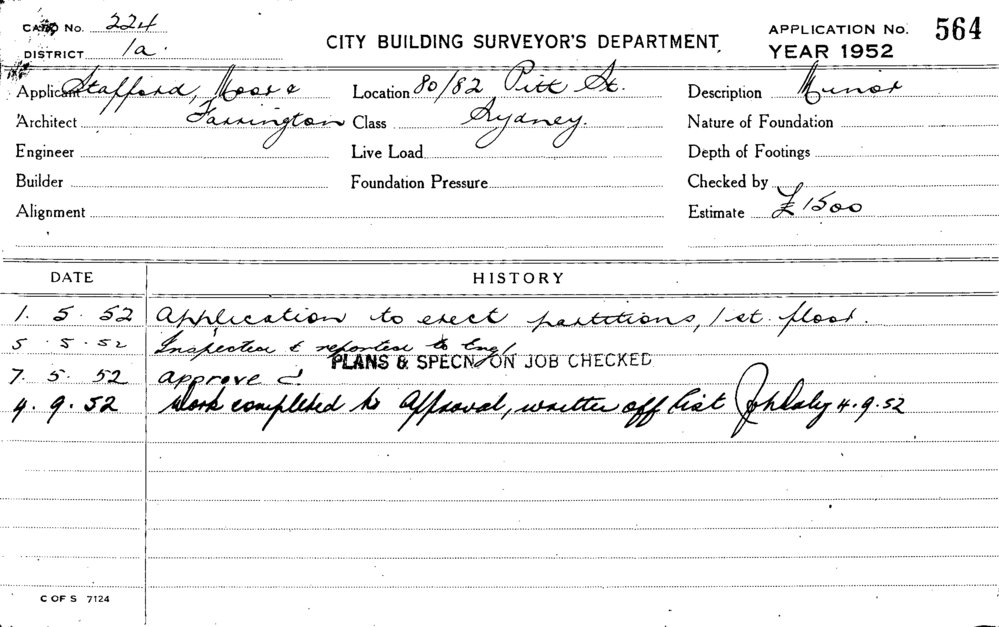 CARD No. 224
DISTRICT 1a.
CITY BUILDING SURVEYOR'S DEPARTMENT.
APPLICATION No. 564
YEAR 1952
Applicant Stafford, Moore
Location 80/82 Pitt St.
Description Minor
Architect Farrington
Class Sydney.
Nature of Foundation
Engineer
Live Load
Depth of Footings
Builder
Foundation Pressure
Checked by
Alignment
Estimate £1500
DATE HISTORY
1. 5. 52 Application to erect partitions, 1st. floor.
5. 5. 52 Inspected & reported to Eng/
PLANS & SPECN. ON JOB CHECKED
7. 5. 52 approved
4. 9. 52 Work completed to Approval, written off list 4.9.52
C OF S 7124